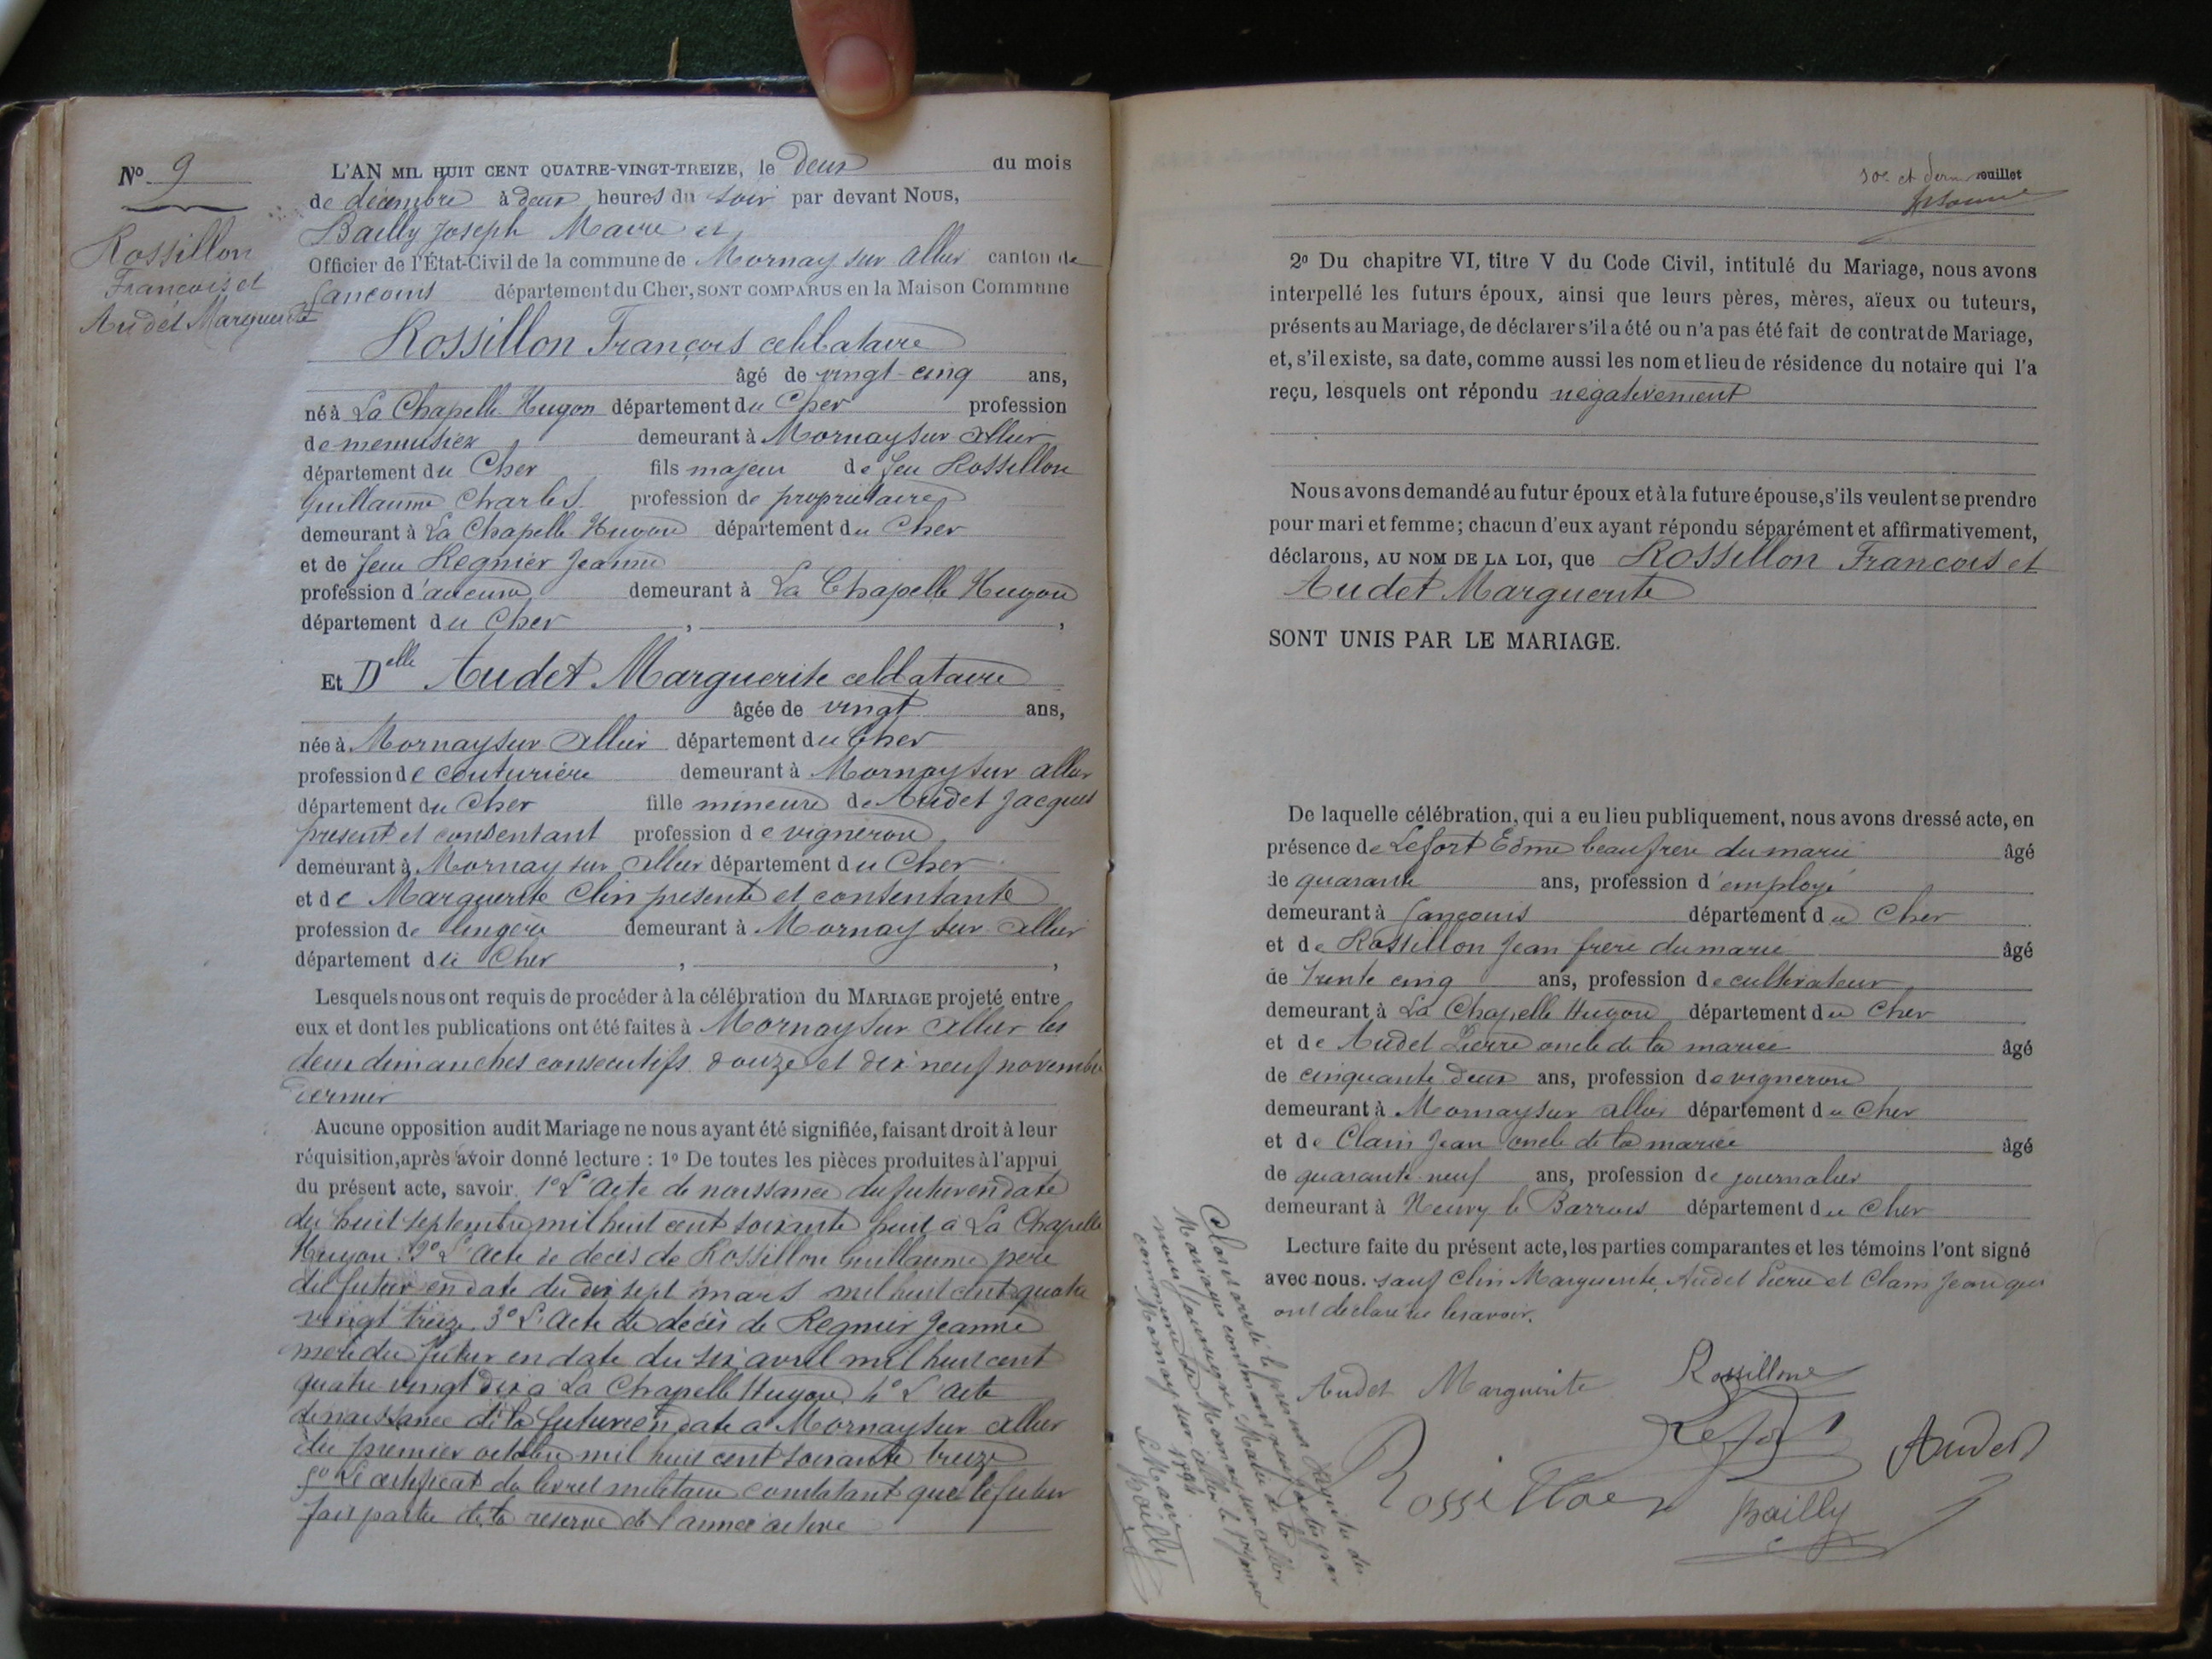 N° 9
Rossillon
François et
Audet Marguerite
L'AN MIL HUIT CENT QUATRE-VINGT-TREIZE, le deux du mois
de décembre à deux heures du soir par devant Nous,
Bailly Joseph Maire et
Officier de l'État-Civil de la commune de Mornay sur Allier canton de
Sancoins département du Cher, SONT COMPARUS en la Maison Commune
Rossillon François celibataire
âgé de vingt-cinq ans,
né à La Chapelle Hugon département du Cher profession
de menuisier demeurant à Mornay sur Allier
département du Cher fils majeur de feu Rossillon
Guillaume Charles profession de propriétaire
demeurant à La Chapelle Hugon département du Cher
et de feu Regnier Jeanne
profession d'aucune demeurant à La Chapelle Hugon
département du Cher , ,
Et Delle Audet Marguerite celibataire
âgée de vingt ans,
née à Mornay sur Allier département du Cher
profession de couturière demeurant à Mornay sur allier
département du Cher fille mineure de Audet Jacques
présent et consentant profession de vigneron
demeurant à Mornay sur Allier département du Cher
et de Marguerite Clin presente et consentante
profession de lingère demeurant à Mornay sur Allier
département du Cher , ,
Lesquels nous ont requis de procéder à la célébration du MARIAGE projeté entre
eux et dont les publications ont été faites à Mornay sur Allier les
deux dimanches consecutifs douze et dix neuf novembre
dernier
Aucune opposition audit Mariage ne nous ayant été signifiée, faisant droit à leur
réquisition, après avoir donné lecture : 1° De toutes les pièces produites à l'appui
du présent acte, savoir 1° L'acte de naissance du futur en date
du huit septembre mil huit cent soixante huit à La Chapelle
Hugon 2° L'acte de décès de Rossillon Guillaume père
du futur en date du dix sept mars mil huit cent quatre
vingt treize 3° L'acte de décès de Regnier Jeanne
mère du futur en date du six avril mil huit cent
quatre vingt dix a La Chapelle Hugon 4° L'acte
de naissance de la future en date a Mornay sur Allier
du premier octobre mil huit cent soixante treize
5° Le certificat du livret militaire constatant que le futur
fait partie de la reserve de l'armée active
10e et dern feuillet
2° Du chapitre VI, titre V du Code Civil, intitulé du Mariage, nous avons
interpellé les futurs époux, ainsi que leurs pères, mères, aïeux ou tuteurs,
présents au Mariage, de déclarer s'il a été ou n'a pas été fait de contrat de Mariage,
et, s'il existe, sa date, comme aussi les nom et lieu de résidence du notaire qui l'a
reçu, lesquels ont répondu négativement
Nous avons demandé au futur époux et à la future épouse, s'ils veulent se prendre
pour mari et femme; chacun d'eux ayant répondu séparément et affirmativement,
déclarons, AU NOM DE LA LOI, que Rossillon François et
Audet Marguerite
SONT UNIS PAR LE MARIAGE.
De laquelle célébration, qui a eu lieu publiquement, nous avons dressé acte, en
présence de Lefort Edme beau frere du marié âgé
de quarante ans, profession d'employé
demeurant à Sancoins département du Cher
et de Rossillon Jean frère du marié âgé
de trente cinq ans, profession de cultivateur
demeurant à La Chapelle Hugon département du Cher
et de Audet Pierre oncle de la mariée âgé
de cinquante deux ans, profession de vigneron
demeurant à Mornay sur allier département du Cher
et de Clain Jean oncle de la mariée âgé
de quarante-neuf ans, profession de journalier
demeurant à Neuvy le Barrois département du Cher
Lecture faite du présent acte, les parties comparantes et les témoins l'ont signé
avec nous. sauf Clin Marguerite, Audet Pierre et Clain Jean qui
ont déclaré ne le savoir.
Audet Marguerite
Rossillon
Lefort
Audet
Rossillon
Bailly
Clos et arrêté le présent Registre des
Mariages contenant neuf actes par
nous soussigné Maire de la
commune de Mornay sur allier
Mornay sur allier le 1er janvier
1894
Le Maire
Bailly